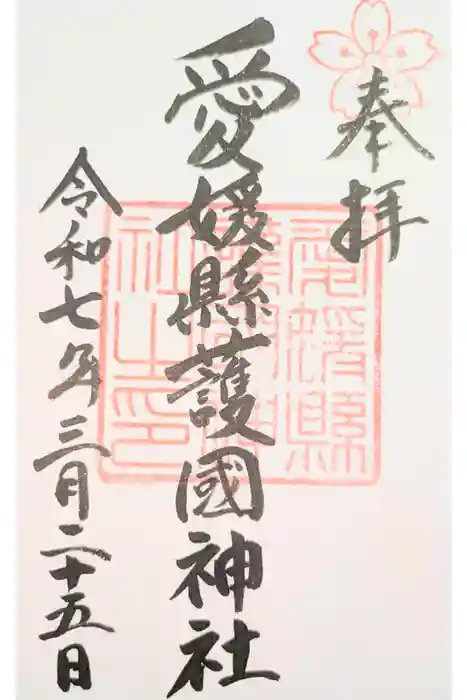 奉拝
愛媛縣護國神社
令和七年三月二十五日
愛媛縣護國神社之印